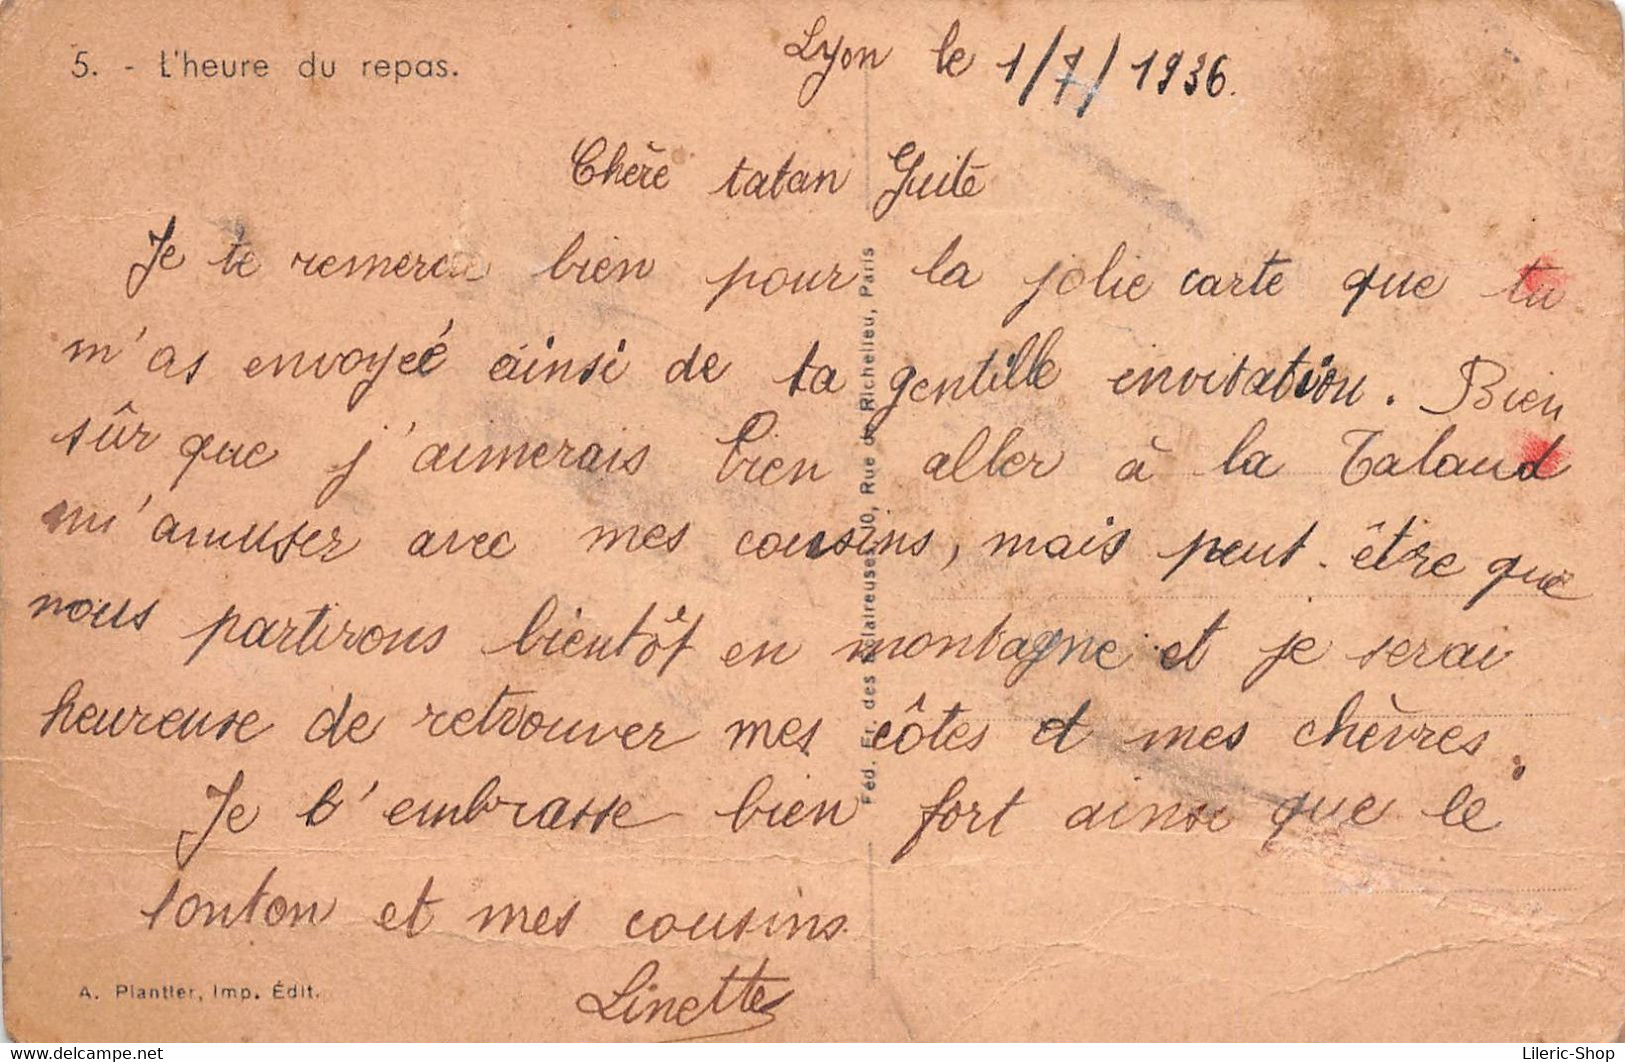 5. - L'heure du repas.
Lyon le 1/7/1936.
Chère tatan Guite
Je te remercie bien pour la jolie carte que tu
m'as envoyée ainsi de ta gentille invitation. Bien
sûr que j'aimerais bien aller à la Talaud
m'amuser avec mes cousins, mais peut-être que
nous partirons bientôt en montagne et je serai
heureuse de retrouver mes côtes et mes chèvres.
Je t'embrasse bien fort ainsi que le
tonton et mes cousins.
Linette
A. Plantier, Imp. Édit.
Féd. Fr. des Éclaireuses, 10, Rue de Richelieu, Paris
Lileric-Shop